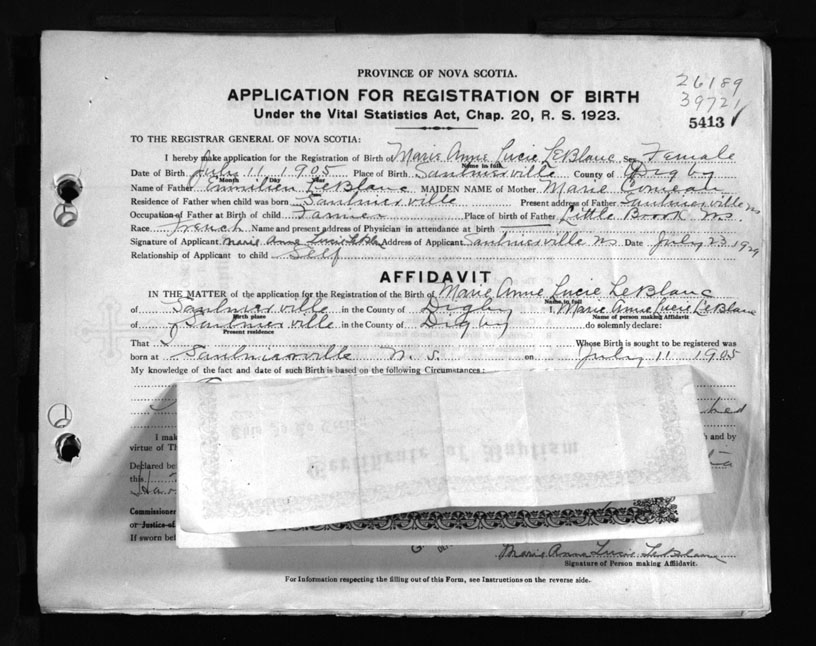 PROVINCE OF NOVA SCOTIA.
26189
39721
APPLICATION FOR REGISTRATION OF BIRTH
Under the Vital Statistics Act, Chap. 20, R. S. 1923.
5413
TO THE REGISTRAR GENERAL OF NOVA SCOTIA:
I hereby make application for the Registration of Birth of Marie Anne Lucie LeBlanc Sex Female
Name in full
Date of Birth July 11 1905 Place of Birth Saulnierville County of Digby
Month Day Year
Name of Father Emmilien LeBlanc MAIDEN NAME of Mother Marie Comeau
Residence of Father when child was born Saulnierville Present address of Father Saulnierville NS
Occupation of Father at Birth of child Farmer Place of birth of Father Little Brook NS.
Race French Name and present address of Physician in attendance at birth
Signature of Applicant Marie Anne Lucie LeBlanc Address of Applicant Saulnierville NS Date July 23 1929
Relationship of Applicant to child Self
AFFIDAVIT
IN THE MATTER of the application for the Registration of the Birth of Marie Anne Lucie LeBlanc
Name in full
of Saulnierville in the County of Digby I, Marie Anne Lucie LeBlanc
Birth place Name of person making Affidavit
of Saulnierville in the County of Digby do solemnly declare:
Present residence
That I Whose Birth is sought to be registered was
born at Saulnierville N. S. on July 11 1905
My knowledge of the fact and date of such Birth is based on the following Circumstances:
I mak h and by
virtue of Th
Declared be
this
Certificate of Baptism
Commissioner
or Justice of
If sworn bef
Marie Anne Lucie LeBlanc
Signature of Person making Affidavit.
For Information respecting the filling out of this Form, see Instructions on the reverse side.